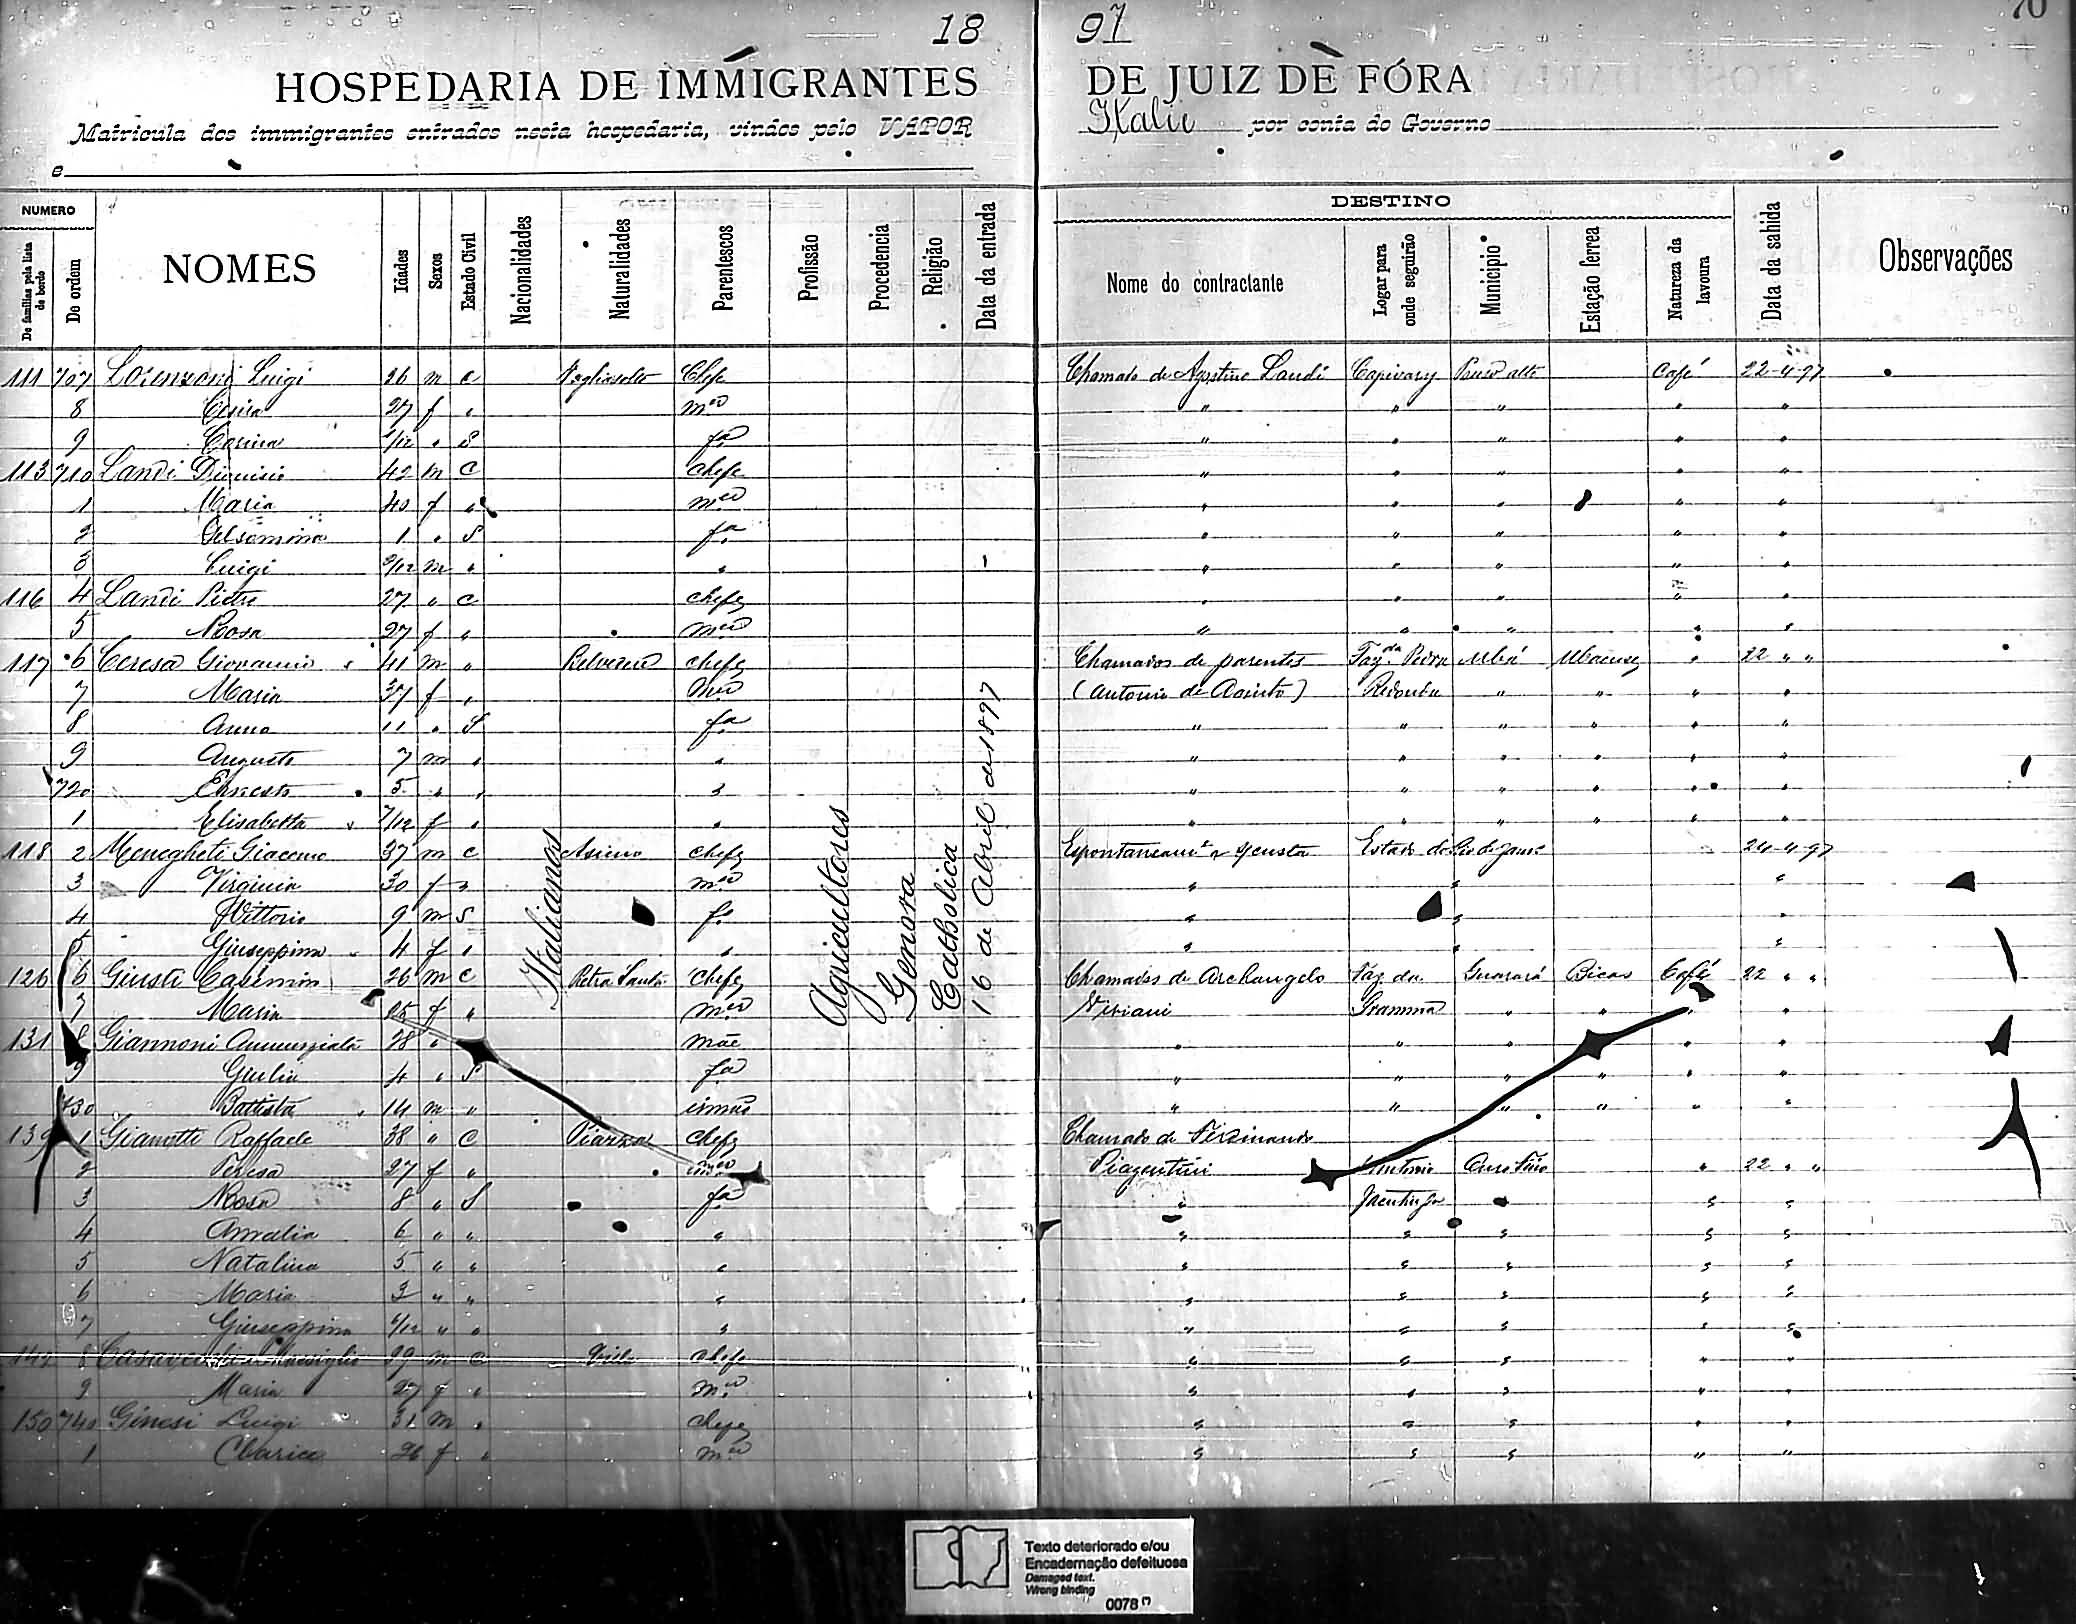 18 97 70
HOSPEDARIA DE IMMIGRANTES DE JUIZ DE FÓRA
Matricula dos immigrantes entrados nesta hospedaria, vindos pelo VAPOR Italie por conta do Governo
e
NUMERO
De familias pela lista de bordo
De ordem
NOMES
Idades
Sexos
Estado Civil
Nacionalidades
Naturalidades
Parentescos
Profissão
Procedencia
Religião
Data da entrada
DESTINO
Nome do contractante
Logar para onde seguirão
Municipio
Estação ferrea
Natureza da lavoura
Data da sahida
Observações
111 707 Lorenzoni Luigi 26 m c Chefe Chamado de Agostino Landi Capivary Pouso alto Café 22-4-97
8 27 f " mer " " " " "
9 /12 " S fa " " " " "
113 710 Landi Dionisio 42 m C chefe " " " " "
1 Maria 40 f " mer " " " " "
2 Gelsomina 1 " S fa " " " " "
3 Luigi 9/12 m " " " " " " "
116 4 Landi Pietro 27 " c chefe " " " " "
5 Rosa 27 f " mer " " " " "
117 6 Ceresa Giovanni 41 m " Belvedere chefe Chamados de parentes Faz. da Pedra Ubá Ubaense " 22 " "
7 Maria 37 f " mer (Antonio de ) Redonda " " " "
8 Anna 11 " S fa " " " " " "
9 Augusto 7 m " " " " " " " "
720 Ernesto 5 " " " " " " " " "
1 Elisabetta 7/12 f " " " " " " " "
118 2 Menegheti Giacomo 37 m c chefe Espontaneamte Estado do Rio de Janro 24-4-97
3 Virginia 30 f " mer " " "
4 Vittorio 9 m S fo " " "
5 Giuseppina 4 f " " " " "
126 6 Giusti Casimiro 26 m C Petra Santa chefe Chamados de Archangelo Faz. da Guarará Bicas Café 22 " "
7 Maria 25 f " mer Viviani Gramma " " " "
131 8 Giannoni Annunziata 28 " mãe " " " " " "
9 Giulia 4 " S fa " " " " " "
730 Battista 14 m " irmão " " " " " "
139 1 Gianotti Raffaele 38 " C Piazza chefe Chamado de Ferdinando
2 Teresa 27 f " mer Piagentini Antonio Ouro Fino " 22 " "
3 Rosa 8 " S fa " Jacutinga " " "
4 Amalia 6 " " " " " " " "
5 Natalina 5 " " " " " " " "
6 Maria 3 " " " " " " " "
7 Giuseppina /12 " " " " " " " "
142 8 39 m c chefe " " " " "
9 Maria 27 f " mer " " " " "
150 740 Ginesi Luigi 31 m " chefe " " " " "
1 Clarice 26 f " mer " " " " "
Italianos
Agricultores
Genova
Catholica
16 de Abril de 1897
Texto deteriorado e/ou
Encadernação defeituosa
Damaged text.
Wrong binding
0078